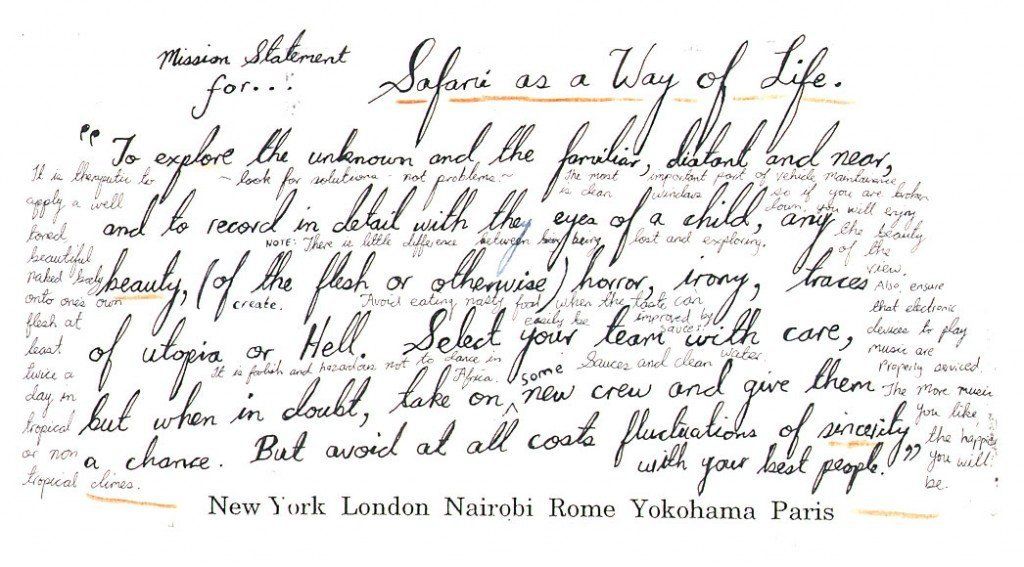 Mission Statement
for... Safari as a Way of Life.
"To explore the unknown and the familiar, distant and near,
~ look for solutions - not problems. ~ The most important part of vehicle maintenance
is clean windows so if you are broken
down, you will enjoy
the beauty
of the
view.
and to record in detail with the eyes of a child, any
NOTE: There is little difference between being lost and exploring,
beauty, (of the flesh or otherwise) horror, irony, traces
create. Avoid eating nasty food, when the taste can
easily be improved by
sauces.
of utopia or Hell. Select your team with care,
It is foolish and hazardous not to dance in
Africa. Sauces and clean water.
but when in doubt, take on some new crew and give them
a chance. But avoid at all costs fluctuations of sincerity
with your best people."
It is therapeutic to
apply a well
toned
beautiful
naked body
onto ones own
flesh at
least
twice a
day, in
tropical
or non
tropical climes.
Also, ensure
that electronic
devices to play
music are
properly serviced.
The More music
you like,
the happier
you will
be.
New York London Nairobi Rome Yokohama Paris